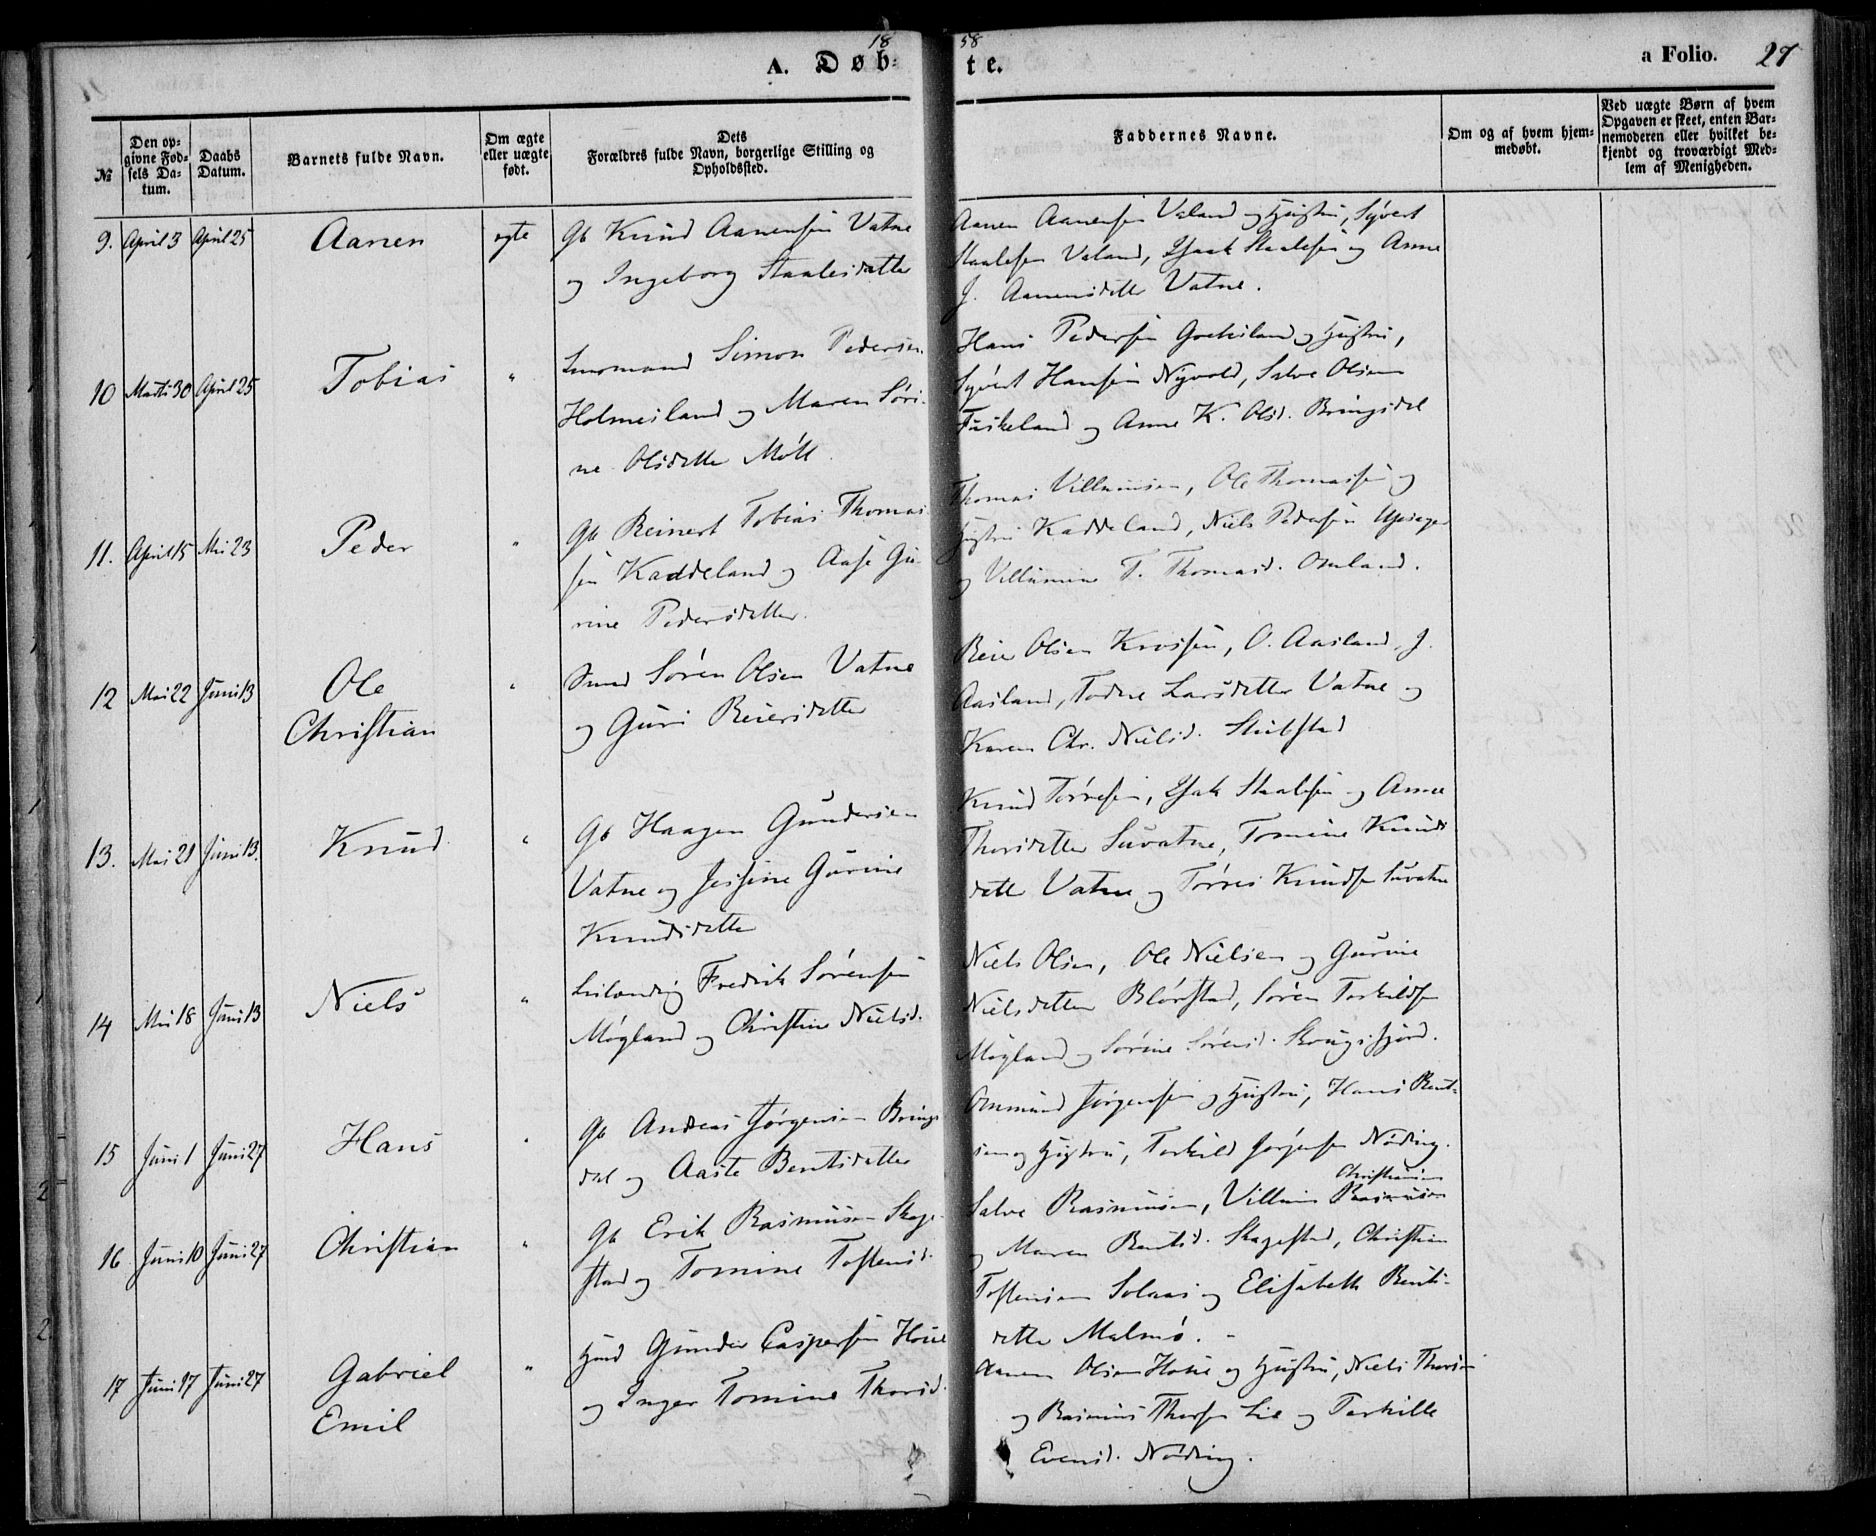 1858
A. Døbte.
a Folio. 27
№
Den opgivne Fødsels Datum.
Daabs Datum.
Barnets fulde Navn.
Om ægte eller uægte født.
Dets Forældres fulde Navn, borgerlige Stilling og Opholdssted.
Faddernes Navne.
Om og af hvem hjemmedøbt.
Ved uægte Børn af hvem Opgaven er skeet, enten Barnemoderen eller hvilket bekjendt og troværdigt Medlem af Menigheden.
9. April 3 April 25 Aanen ægte Gb Knud Aanensen Vatne
og Ingeborg Staalesdatter
Aanen Aanensen Valand og Hustru, Syvert
Staalesen Valand, Isaak Staalesen og Anne
J. Aanensdatter Vatne.
10 Marts 30 April 25 Tobias " Simon Pedersen
Holmesland og Maren Søri-
ne Olsdatter Møll
Hans Pedersen Groksland og Hustru,
Syvert Hansen Nyvold, Salve Olsen
Fuskeland og Anne K. Olsd. Bringsdal
11. April 15 Mai 23 Peder " Gb Reinert Tobias Thomas-
sen Kaddeland og Aase Gu-
rine Pedersdatter.
Thomas Villumsen, Ole Thomassen og
Hustru Kaddeland, Niels Pedersen
og Villumine T. Thomasd. Omland.
12 Mai 22 Juni 13 Ole
Christian " Søren Olsen Vatne
og Guri Reiersdatter
Reier Olsen Krossen, O. Aasland, J.
Aasland, Todne Larsdatter Vatne og
Karen Chr. Nielsd. Stubstad
13. Mai 21 Juni 13. Knud " Gb Haagen Gundersen
Vatne og Jessine Gurine
Knudsdatter
Knud Tørresen, Isak Staalesen og Anne
Thorsdatter Suvatne, Tomine Knuds-
datter Vatne og Tørres Knudsen Suvatne
14 Mai 18 Juni 13 Niels " Leilænding Fredrik Sørensen
Møgland og Christine Nielsd.
Niels Olsen, Ole Nielsen og Gurine
Nielsdatter Blørstad, Søren Torkildsen
Møgland og Sørine Sørensd. Skougsfjord.
15 Juni 1 Juni 27 Hans " Gb Andreas Jørgensen Brings-
dal og Aaste Bentsdatter
Ommund Jørgensen og Hustru, Hans Bent-
sen og Hustru, Torkild Jørgensen Nøding.
16 Juni 10 Juni 27 Christian " Gb Erik Rasmussen Skage-
stad og Tomine Tostensd.
Salve Rasmussen, Villum Rasmussen Christiansen
og Maren Bentsd. Skagestad, Christian
Tostensen Solaas og Elisabeth Bents-
datter Malmø.
17 Juni 17 Juni 27 Gabriel
Emil " Hmd Gunder Caspersen Houe
og Inger Tomine Thorsd.
Aanen Olsen Houe og Hustru, Niels Thorsen
og Rasmus Thorsen Lie og Torkille
Evensd. Nøding.